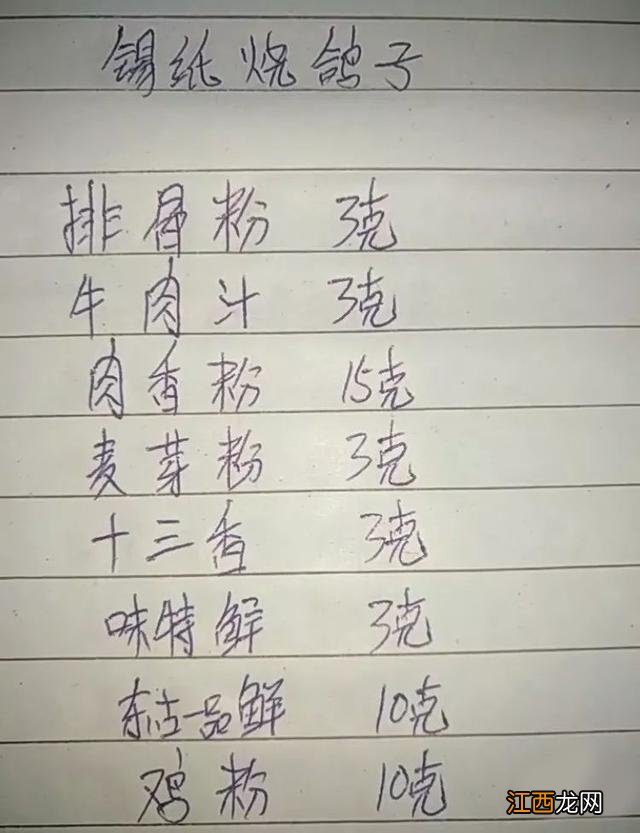 锡纸烧鸽子
排骨粉 3克
牛肉汁 3克
肉香粉 15克
麦芽粉 3克
十三香 3克
味特鲜 3克
东古一品鲜 10克
鸡粉 10克
江西龙网